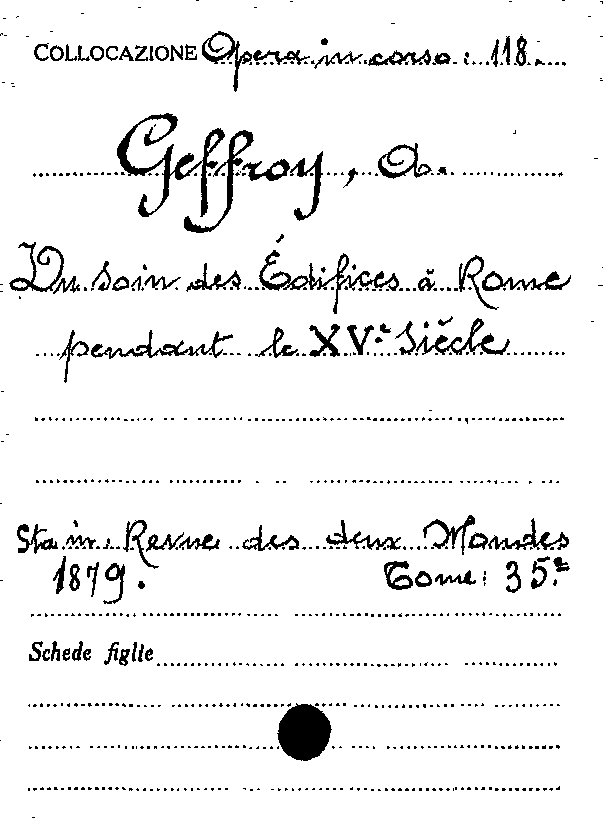 COLLOCAZIONE Opera in corso: 118.
Geffroy, A.
Du soin des Édifices à Rome
pendant le XVe Siècle
Sta in: Revue des deux Mondes
1879. Tome: 35e
Schede figlie